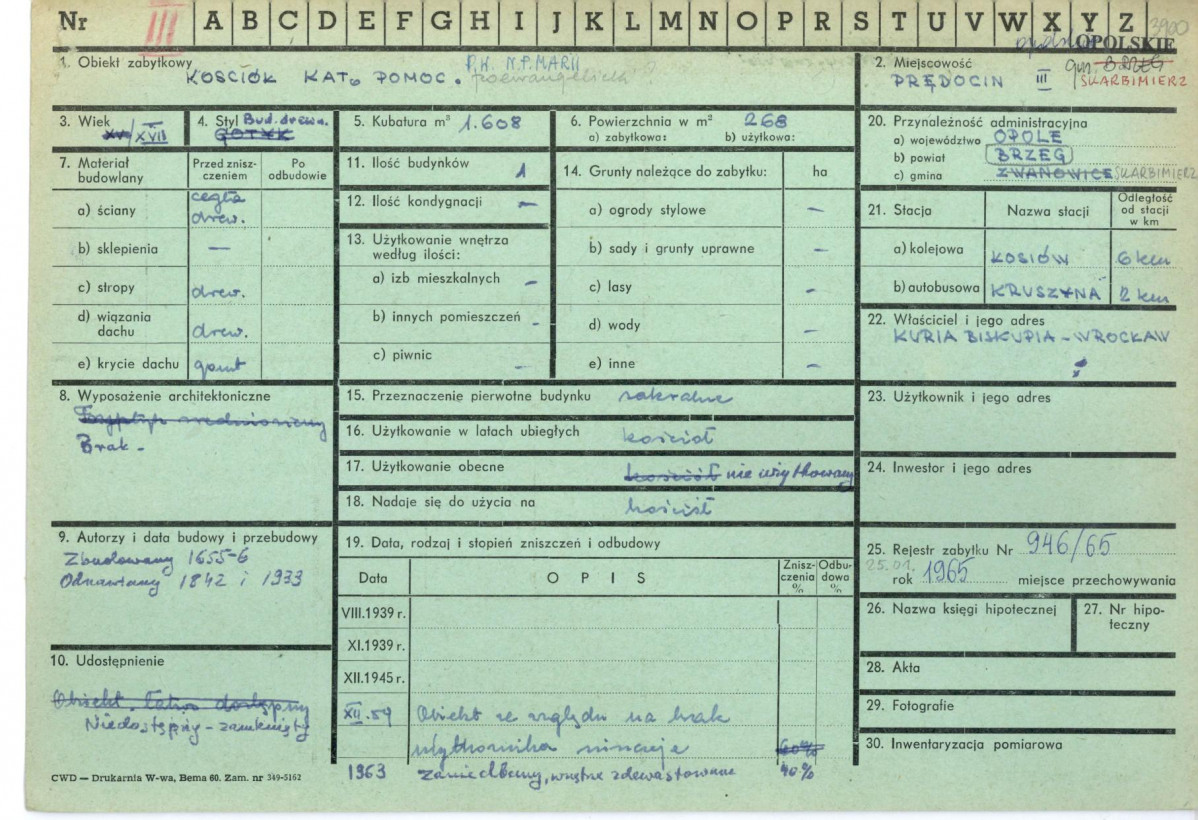 Nr III A B C D E F G H I J K L M N O P R S T U V W X Y Z 3900
OPOLSKIE
1. Obiekt zabytkowy
KOSCIÓŁ KAT. POMOC. P.W. N.P. MARII
poewangelicki
2. Miejscowość gm. BRZEG
PRĘDOCIN III SKARBIMIERZ
3. Wiek
XV/XVII
4. Styl Bud. drewn.
GOTYK
5. Kubatura m³ 1.608
6. Powierzchnia w m² 268
a) zabytkowa: b) użytkowa:
7. Materiał budowlany
Przed zniszczeniem
Po odbudowie
a) ściany cegła
drew.
b) sklepienia —
c) stropy drew.
d) wiązania dachu drew.
e) krycie dachu gont
8. Wyposażenie architektoniczne
Tryptyk średniowieczny
Brak -
9. Autorzy i data budowy i przebudowy
Zbudowany 1655-6
Odnawiany 1842 i 1933
10. Udostępnienie
Obiekt łatwo dostępny
Niedostępny - zamknięty
11. Ilość budynków 1
12. Ilość kondygnacji —
13. Użytkowanie wnętrza
według ilości:
a) izb mieszkalnych —
b) innych pomieszczeń -
c) piwnic —
14. Grunty należące do zabytku: ha
a) ogrody stylowe —
b) sady i grunty uprawne —
c) lasy —
d) wody —
e) inne —
15. Przeznaczenie pierwotne budynku sakralne
16. Użytkowanie w latach ubiegłych kościół
17. Użytkowanie obecne kościół nie użytkowany
18. Nadaje się do użycia na kościół
19. Data, rodzaj i stopień zniszczeń i odbudowy
Data OPIS Zniszczenia % Odbudowa %
VIII.1939 r.
XI.1939 r.
XII.1945 r.
XII.59 Obiekt ze względu na brak
użytkownika niszczeje 60%
1963 Zaniedbany, wnętrze zdewastowane 40%
20. Przynależność administracyjna
a) województwo OPOLE
b) powiat BRZEG
c) gmina ZWANOWICE SKARBIMIERZ
21. Stacja Nazwa stacji Odległość od stacji w km
a) kolejowa KOSIÓW 6 km
b) autobusowa KRUSZYNA 2 km
22. Właściciel i jego adres
KURIA BISKUPIA - WROCŁAW
23. Użytkownik i jego adres
24. Inwestor i jego adres
25. Rejestr zabytku Nr 946/65
25.01. rok 1965 miejsce przechowywania
26. Nazwa księgi hipotecznej
27. Nr hipoteczny
28. Akta
29. Fotografie
30. Inwentaryzacja pomiarowa
CWD — Drukarnia W-wa, Bema 60. Zam. nr 349-5162